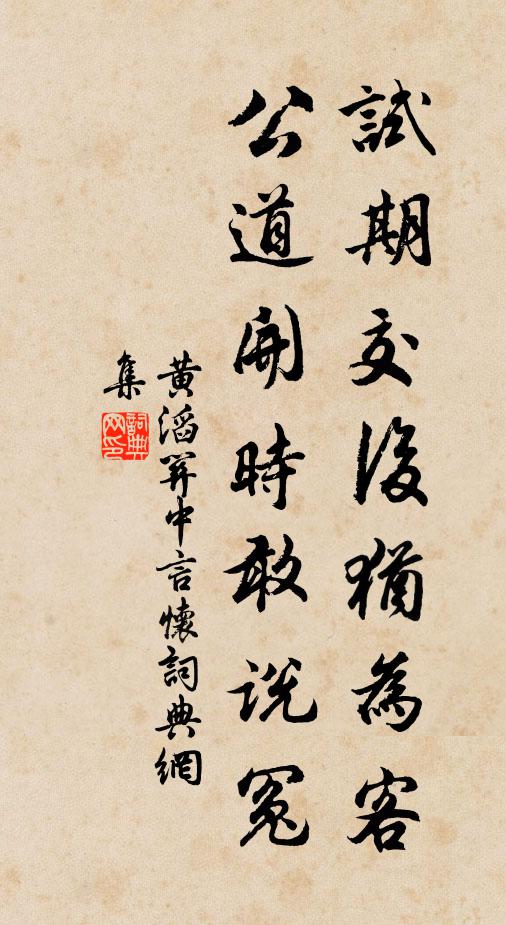 試期交後猶為客
公道開時敢説冤
黄滔關中言懷詞典網
集
詞典
网印